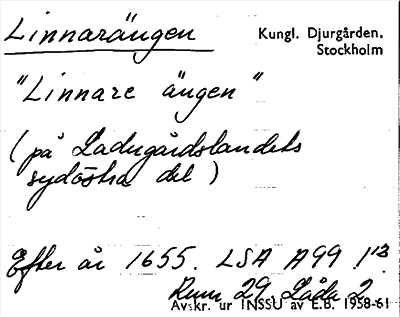 Linnarängen
Kungl. Djurgården.
Stockholm
"Linnare ängen"
(på Ladugårdslandets
sydöstra del)
Efter år 1655. LSA A99 1¹³.
Rum 29 Låda 2
Avskr. ur INSSU av E.B. 1958-61